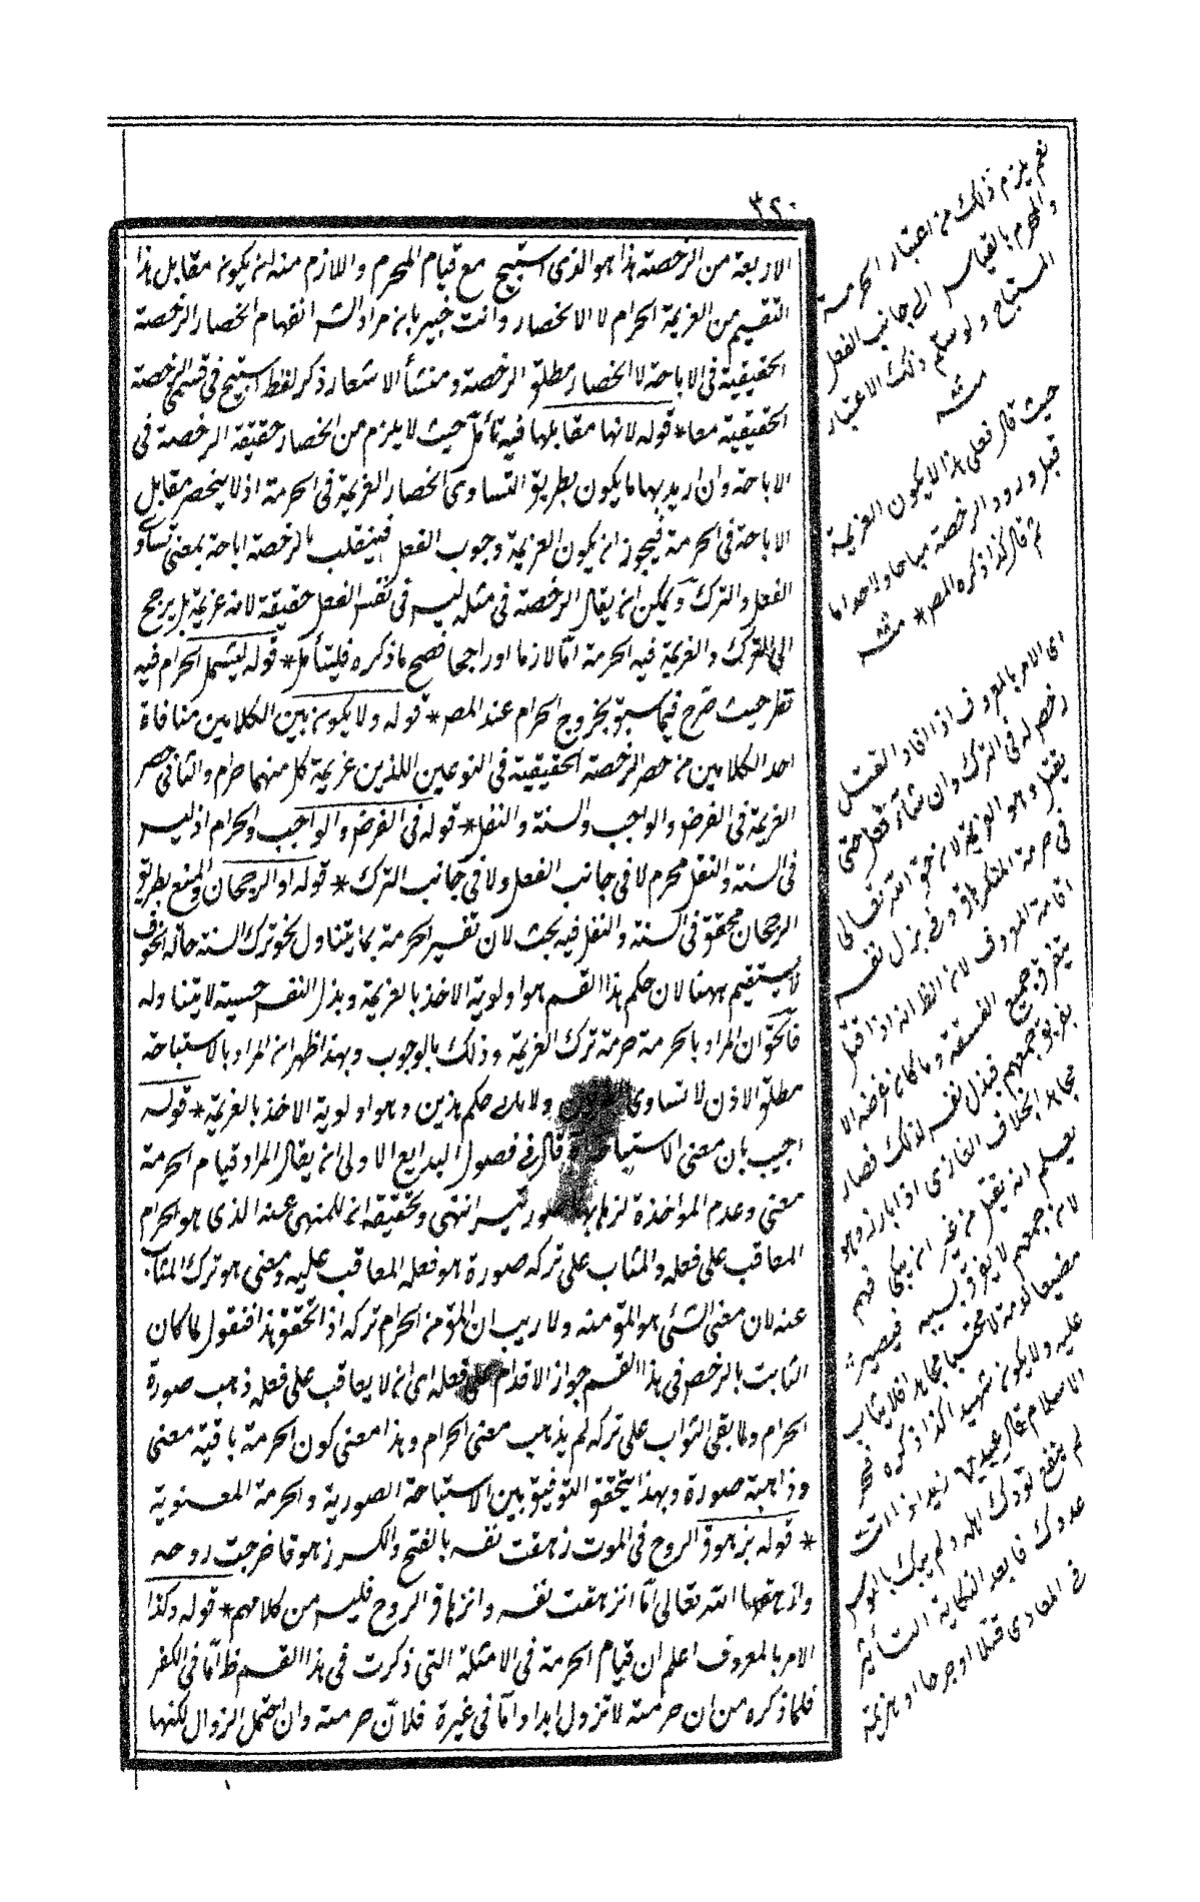 ٣٢٠
الاربعة من الرخصة هذا هو الذى استبيح مع قيام المحرم واللازم منه ان يكون مقابل هذا
التقسيم من العزيمة الحرام لا الانحصار وانت خبير بان مراد الش انفهام انحصار الرخصة
الحقيقية فى الاباحة لا انحصار مطلق الرخصة ومنشأ الاشعار ذكر لفظ استبيح فى قسمى الرخصة
الحقيقية معا * قوله لانها مقابلها فيه تأمل حيث لا يلزم من انحصار حقيقة الرخصة فى
الاباحة وان اريد بها ما يكون بطريق التساوى انحصار العزيمة فى الحرمة اذ لا ينحصر مقابل
الاباحة فى الحرمة فيجوز ان يكون العزيمة وجوب الفعل فينقلب بالرخصة اباحة بمعنى تساوى
الفعل والترك ويمكن ان يقال الرخصة فى مثله ليس فى نفس الفعل حقيقة لانه عزيمة بل يرجح
الى الترك والعزيمة فيه الحرمة اما لازما او راجحا فصح ما ذكره فليتأمل * قوله ليشمل الحرام فيه
نظر حيث صرح فيما سبق بخروج الحرام عند المص * قوله ولا يكون بين الكلامين منافاة
احد الكلامين من حصر الرخصة الحقيقية فى النوعين اللذين عزيمة كل منهما حرام والثانى حصر
العزيمة فى الفرض والواجب والسنة والنفل * قوله فى الفرض والواجب والحرام اذ ليس
فى السنة والنفل محرم لا فى جانب الفعل ولا فى جانب الترك * قوله او الرجحان والمنع بطريق
الرجحان محقق فى السنة والنفل فيه بحث لان تفسير الحرمة بما يتناول نحو ترك السنة حالة الخوف
لا يستقيم ههنا لان حكم هذا القسم هو اولوية الاخذ بالعزيمة وبذل النفس حسبة لا يتناوله
فالحق ان المراد بالحرمة حرمة ترك العزيمة وذلك بالوجوب وبهذا ظهر ان المراد بالاستباحة
مطلق الاذن لا تساوى ولا حكم هذين وهو اولوية الاخذ بالعزيمة * قوله
اجيب بان معنى الاستباحة قال فى فصول البدايع الاولى ان يقال المراد قيام الحرمة
معنى وعدم المؤاخذة لزهابها صورة انتهى وتحقيقه ان للمنهى عنه الذى هو الحرام
المعاقب على فعله والمثاب على تركه صورة هو فعله المعاقب عليه ومعنى هو ترك المثاب
عنه لان معنى الشئ هو المق منه ولا ريب ان المق من الحرام تركه اذا تحقق هذا فنقول لما كان
الثابت بالرخص فى هذا القسم جواز الاقدام على فعله اى ان لا يعاقب على فعله ذهب صورة
الحرام ولما بقى الثواب على تركه لم يذهب معنى الحرام وهذا معنى كون الحرمة باقية معنى
وذاهبة صورة وبهذا يتحقق التوفيق بين الاستباحة الصورية والحرمة المعنوية
* قوله بزهوق الروح فى الموت زهقت نفسه بالفتح والكسر زهوقا خرجت روحه
وازهقها الله تعالى اما انزهقت نفسه وانزهاق الروح فليس من كلامهم * قوله وكذا
الامر بالمعروف اعلم ان قيام الحرمة فى الامثلة التى ذكرت فى هذا القسم ظ اما فى الكفر
فلما ذكره من ان حرمته لا تزول ابدا واما فى غيره فلان حرمته وان احتمل الزوال لكنها
نعم يلزم ذلك من اعتبار الحرمة
والمحرم بالقياس الى جانب الفعل
المستباح ولو سلم ذلك الاعتبار
منه
حيث قال فعلى هذا لا يكون العزيمة
قبل ورود الرخصة مباحا ولا حراما
ثم قال كذا ذكره المص * منه
اى الامر بالمعروف اذا افاد القتل
رخص له فى الترك وان شاء فعل حتى
يقتل وهو العزيمة لان حق الله تعالى
فى حرمة المنكر باق وفى بذل نفسه
اقامة المعروف لان الظ انه اذا قتل
يتفرق جميع الفسقة وما كان غرضه الا
تفريق جمعهم فبذل نفسه لذلك فصار
مجاهدا بخلاف الغازى اذا بارز وهو
يعلم انه يقتل من غير ان ينكى فيهم
لان جمعهم لا يفرق بسببه فيصير
مضيعا لدمه لا محتسبا مجاهدا فلا يثاب
عليه ولا يكون شهيدا كذا ذكره فخر
الاسلام قال
لم
عدوك فابعد النكاية التأثير
فى المعادى قتلا او جرحا او هزيمة